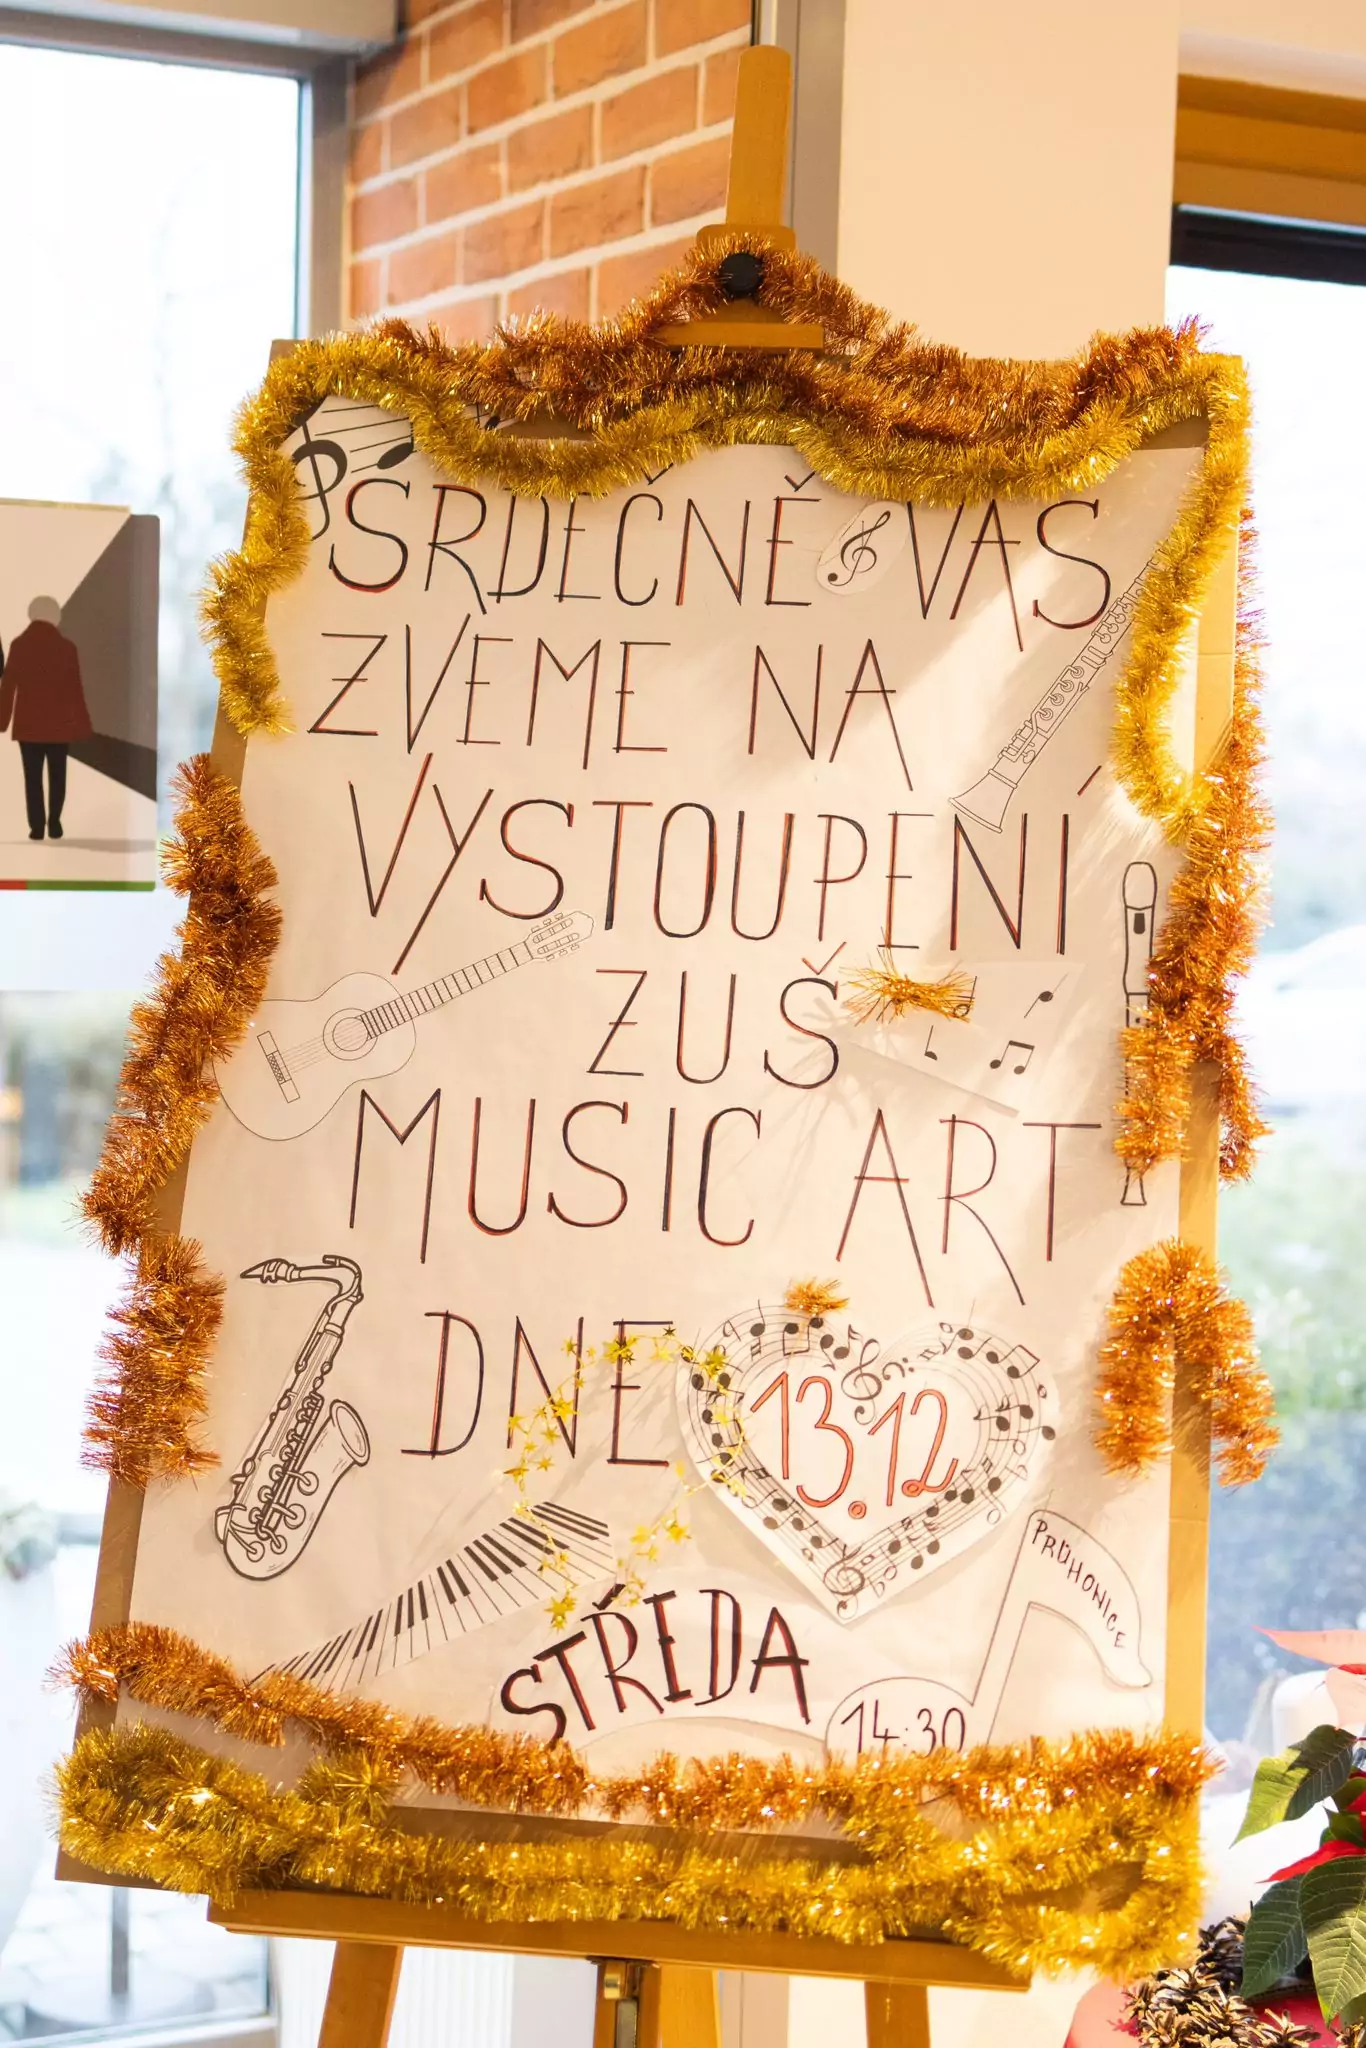 SRDEČNĚ VÁS
ZVEME NA
VYSTOUPENÍ
ZUŠ
MUSIC ART
DNE 13.12
STŘEDA
PRŮHONICE
14:30